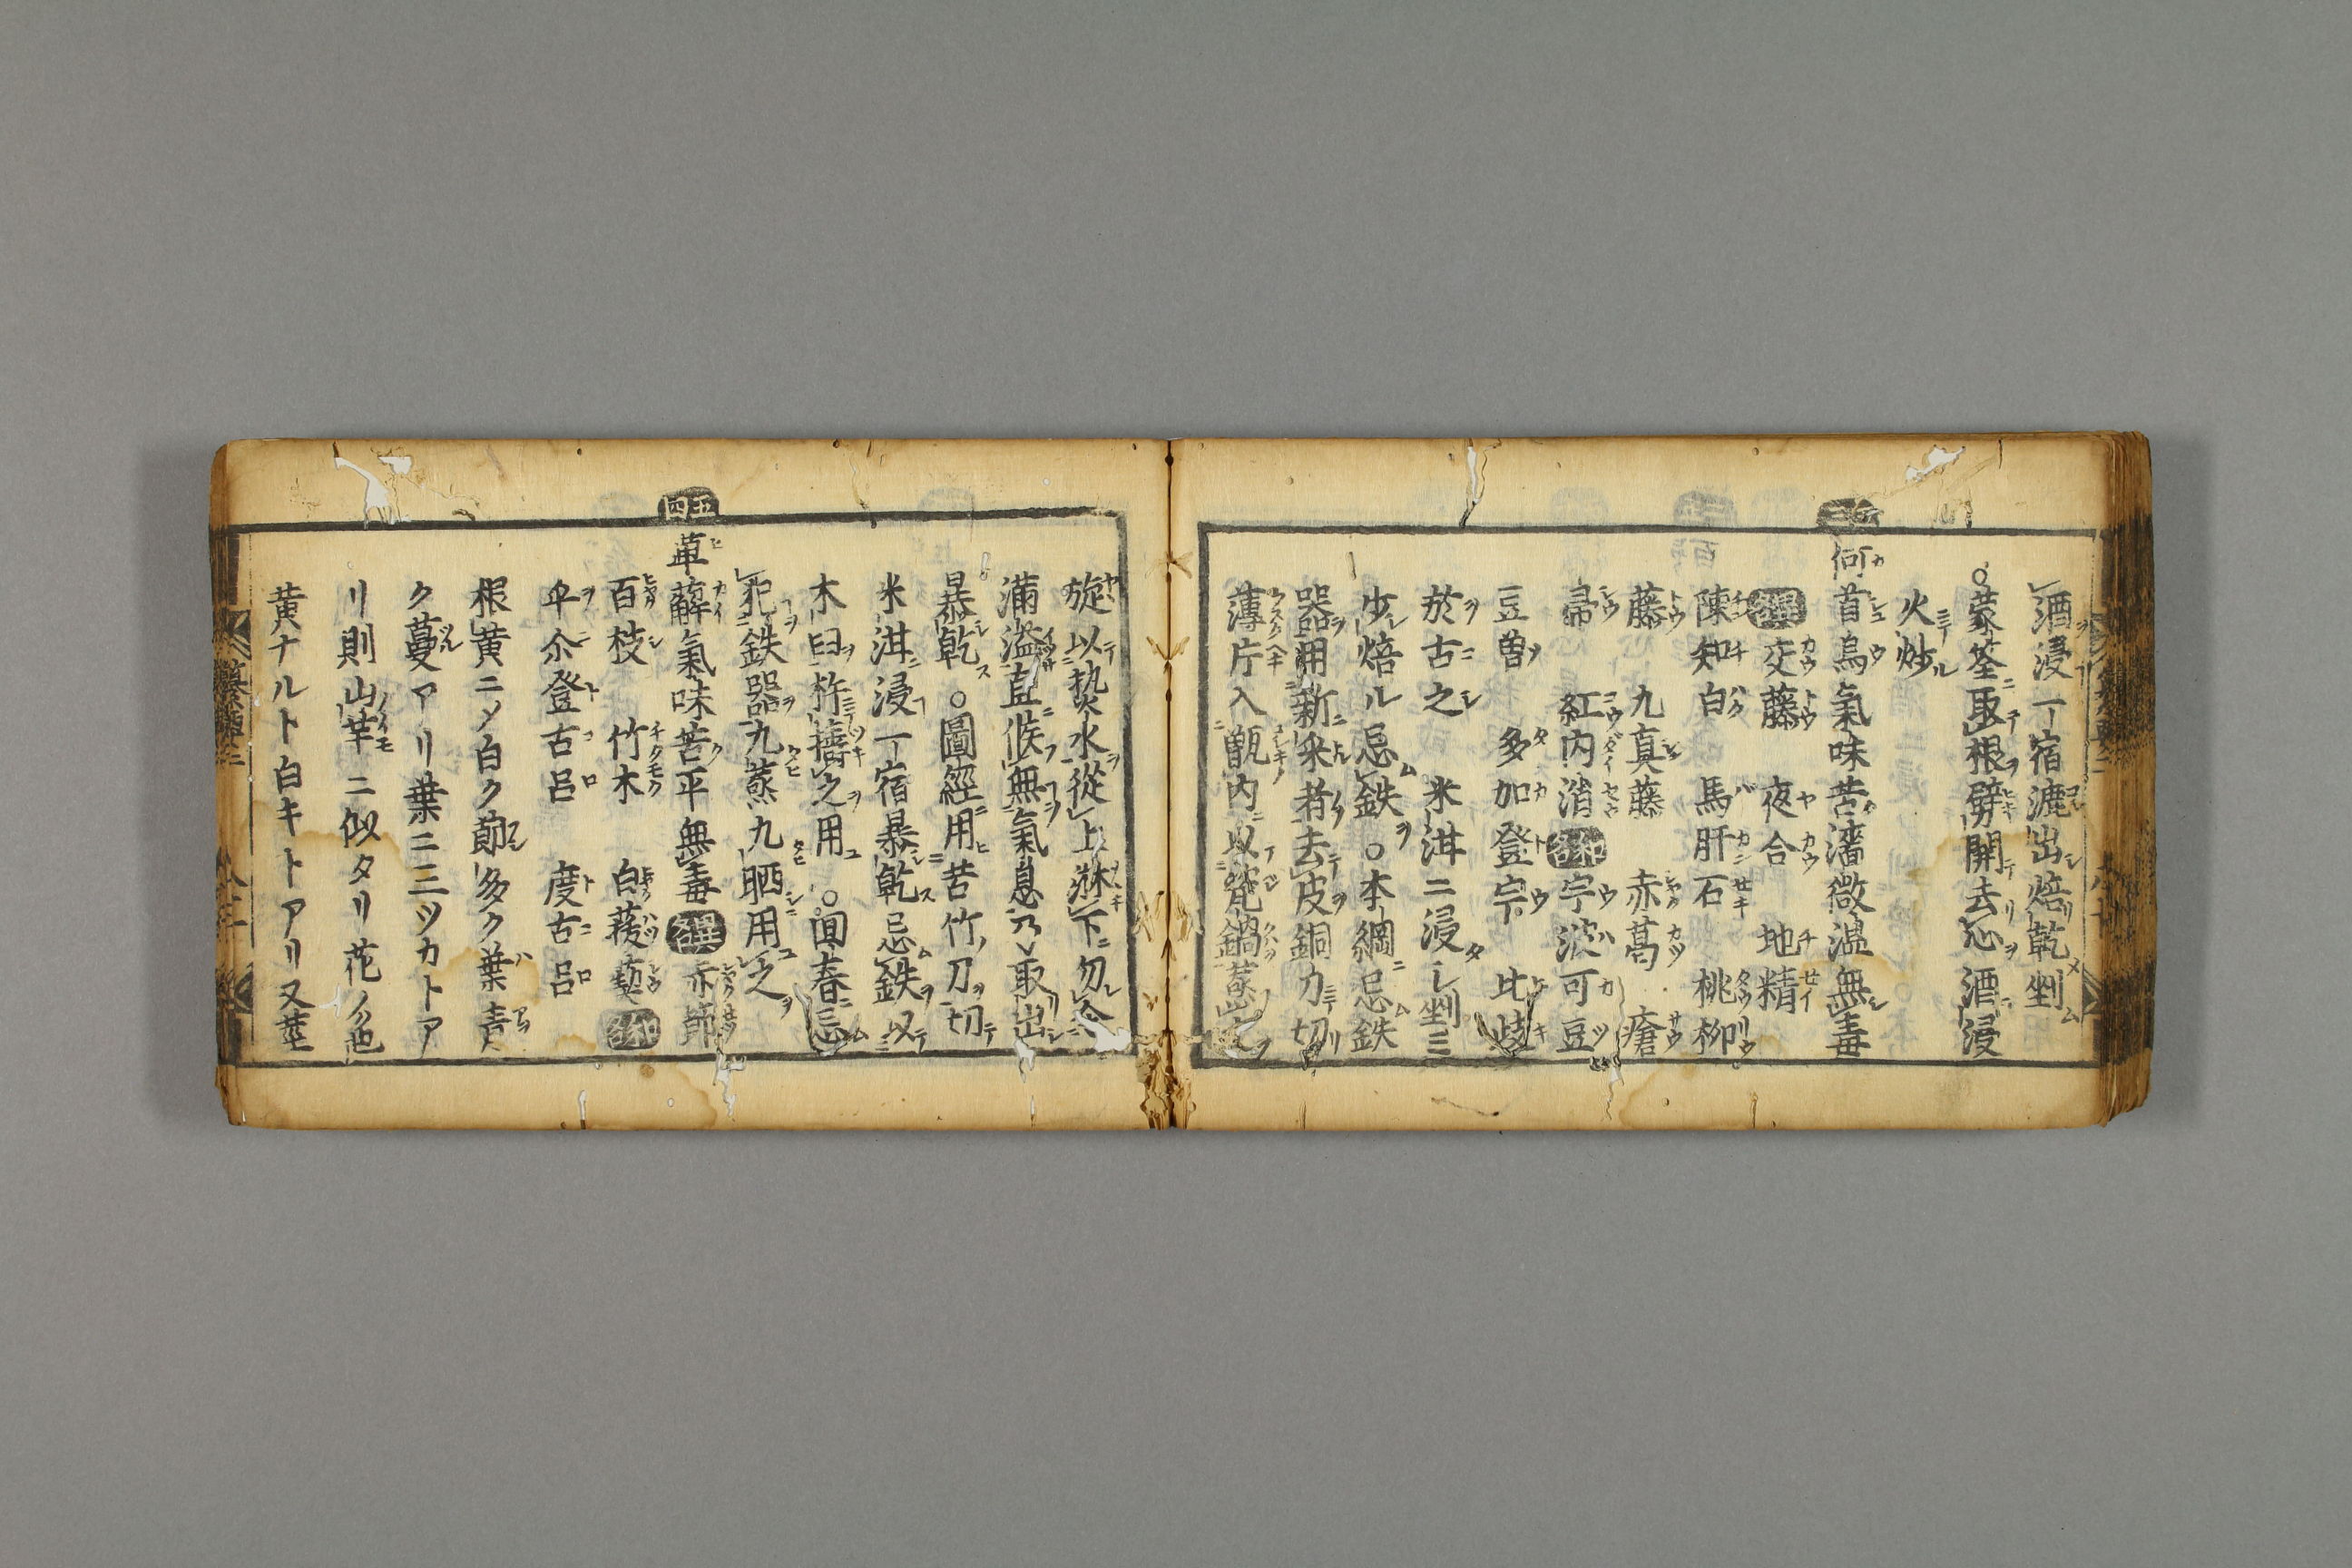 酒浸一宿漉出焙乾剉
○蒙筌取根劈開去心酒浸
火炒
何首烏氣味苦濇微温無毒
異名 交藤 夜合 地精
陳知白 馬肝石 桃柳
藤 九真藤 赤葛 瘡
帚 紅内消 和名 宇波可豆
豆曽 多加登宇 比岐
於古之 米泔ニ浸し剉ミ
少焙ル忌鉄○本綱忌鉄
器用新采者去皮銅刀切
薄片入甑内以瓷鍋蒸之
旋以熱水從上淋下勿令
滿溢直候無氣息乃取出
暴乾○圖經用苦竹刀切
米泔浸一宿暴乾忌鉄以
木臼杵擣之用○閩春忌
犯鉄器九蒸九晒用之
五四
萆薢氣味苦平無毒 異名 赤節
百枝 竹木 白菝葜 和名
於尓登古呂 度古呂
根黄ニメ白ク節多ク葉青
ク蔓アリ葉ニ三ツカトア
リ則山芋ニ似タリ花ノ色
黄ナルト白キトアリ又莖